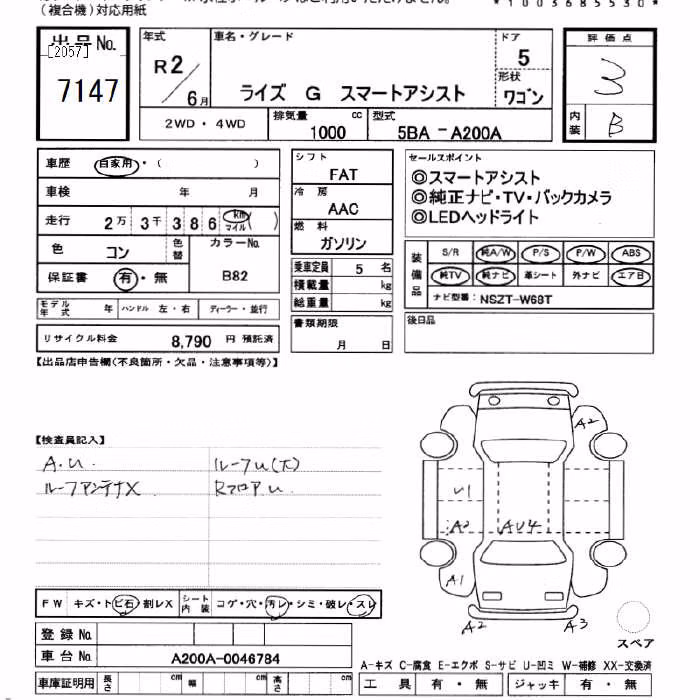 （複合機）対応用紙
*1003685530*
出品No.
[2057]
7147
年式
R2/6月
車名・グレード
ライズ G スマートアシスト
ドア
5
形状
ワゴン
評価点
3
内装
B
2WD・4WD
排気量
1000
cc
型式
5BA－A200A
車歴 自家用・（ ）
車検 年 月
走行 2万3千386 km マイル（ ）
色 コン 色替
カラーNo. B82
保証書 有・無
モデル年式 年 ハンドル 左・右 ディーラー・並行
リサイクル料金 8,790 円 預託済
シフト
FAT
冷房
AAC
燃料
ガソリン
乗車定員 5 名
積載量 kg
総重量 kg
書類期限
月 日
セールスポイント
◎スマートアシスト
◎純正ナビ・TV・バックカメラ
◎LEDヘッドライト
装備品
S/R 純A/W P/S P/W ABS
純TV 純ナビ 革シート 外ナビ エアB
ナビ型番: NSZT-W68T
後日品
【出品店申告欄(不良箇所・欠品・注意事項等)】
【検査員記入】
A.U ルーフU(大)
ルーフアンテナX RフロアU
A2
U1
A2 AU4
A1
A2 A3
スペア
FW キズ・トビ石・割レX シート内装 コゲ・穴・汚レ・シミ・破レ・スレ
登録No.
車台No. A200A-0046784
車庫証明用 長さ cm 幅 cm 高さ cm
A－キズ C－腐食 E－エクボ S－サビ U－凹ミ W－補修 XX－交換済
工具 有・無 ジャッキ 有・無